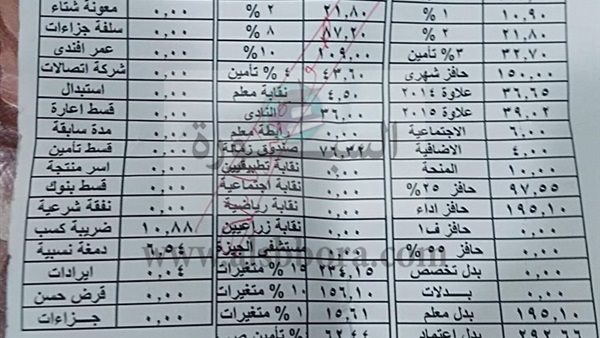 ١٠,٩٠ ١ %
٢١,٨٠ ٢ %
٣٢,٧٠ ٣% تأمين
١٥٠,٠٠ حافز شهرى
٣٦,٦٥ علاوة ٢٠١٤
٣٩,٠٢ علاوة ٢٠١٥
٦,٠٠ الاجتماعية
٤,٠٠ الاضافية
١٠,٠٠ المنحة
٩٧,٥٥ حافز ٢٥%
١٩٥,١٠ حافز اداء
٠,٠٠ حافز ف١
٠,٠٠ حافز ٥٥ %
٠,٠٠ بدل تخصص
٠,٠٠ بدلات
١٩٥,١٠ بدل معلم
٢٩٢,٦٦ بدل اعتماد
٢١,٨٠ ٢ %
٨٧,٢٠ ٨ %
١٠٩,٠٠ ١٠%
٤٣,٦٠ ٤ % تأمين
٤,٥٠ نقابة معلم
٣٦,٠٠ النادى
٠,٠٠ رابطة معلم
صندوق زمالة
نقابة تطبيقيين
٠,٠٠ نقابة اجتماعية
٠,٠٠ نقابة رياضية
٠,٠٠ نقابة زراعيين
٠,٠٠ مستشفى الجيزة
٢٣٤,١٥ ١٥ % متغيرات
١٥٦,١٠ ١٠ % متغيرات
١٥,٦١ ١ % متغيرات
٦٢,٤٤ % تأمين
٠,٠٠ معونة شتاء
٠,٠٠ سلفة جزاءات
٠,٠٠ عمر افندى
٠,٠٠ شركة اتصالات
٠,٠٠ استبدال
٠,٠٠ قسط اعارة
٠,٠٠ مدة سابقة
٠,٠٠ قسط تأمين
٠,٠٠ اسر منتجة
٠,٠٠ قسط بنوك
٠,٠٠ نفقة شرعية
١٠,٨٨ ضريبة كسب
٦,٥٤ دمغة نسبية
٠,٠٤ ايرادات
٠,٠٠ قرض حسن
٠,٠٠ جزاءات